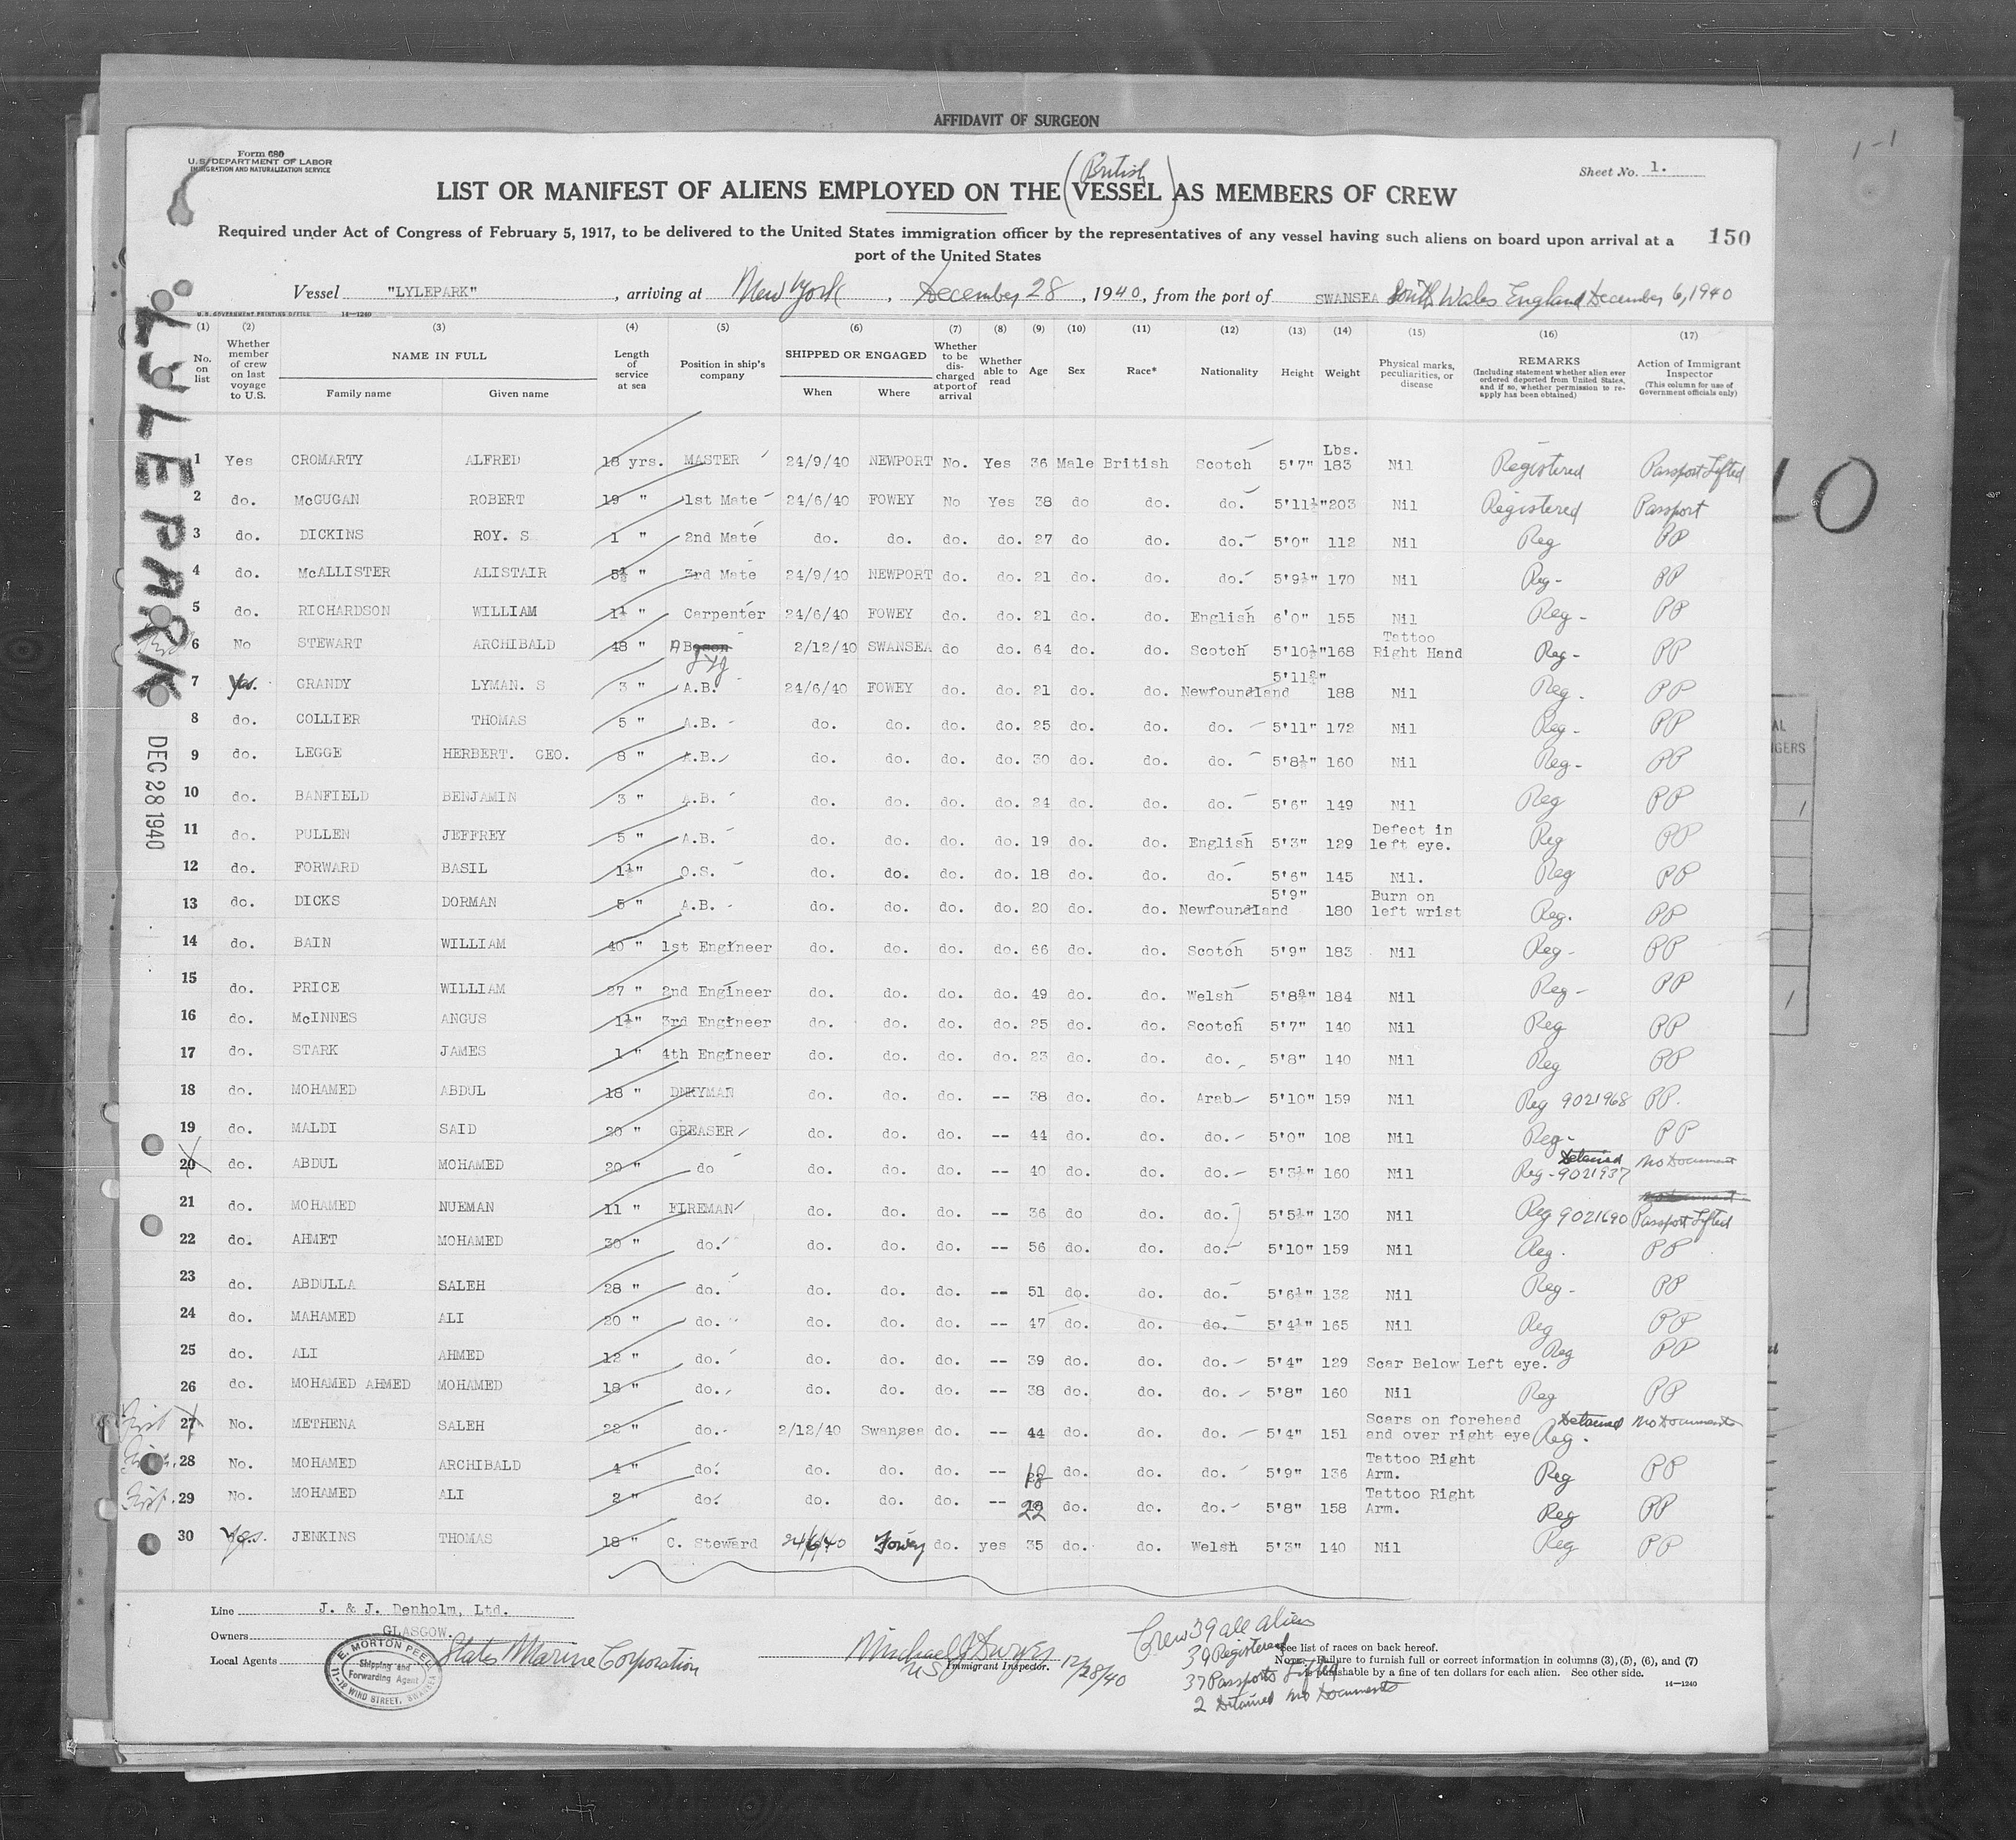 AFFIDAVIT OF SURGEON
1-1
Form 680
U.S. DEPARTMENT OF LABOR
IMMIGRATION AND NATURALIZATION SERVICE
Sheet No. 1.
British
LIST OR MANIFEST OF ALIENS EMPLOYED ON THE (VESSEL) AS MEMBERS OF CREW
Required under Act of Congress of February 5, 1917, to be delivered to the United States immigration officer by the representatives of any vessel having such aliens on board upon arrival at a
port of the United States
150
Vessel "LYLEPARK", arriving at New York, December 28, 1940, from the port of SWANSEA South Wales England December 6, 1940
U.S. GOVERNMENT PRINTING OFFICE 14-1240
LYLEPARK
DEC 28 1940
(1) (2) (3) (4) (5) (6) (7) (8) (9) (10) (11) (12) (13) (14) (15) (16) (17)
No. on list
Whether member of crew on last voyage to U.S.
NAME IN FULL
Family name Given name
Length of service at sea
Position in ship's company
SHIPPED OR ENGAGED
When Where
Whether to be discharged at port of arrival
Whether able to read
Age Sex Race* Nationality Height Weight
Physical marks, peculiarities, or disease
REMARKS
(Including statement whether alien ever ordered deported from United States, and if so, whether permission to reapply has been obtained)
Action of Immigrant Inspector
(This column for use of Government officials only)
Lbs.
1 Yes CROMARTY ALFRED 18 yrs. MASTER 24/9/40 NEWPORT No. Yes 36 Male British Scotch 5'7" 183 Nil Registered Passport Lifted
2 do. McGUGAN ROBERT 19 " 1st Mate 24/6/40 FOWEY No Yes 38 do do. do. 5'11½" 203 Nil Registered Passport
3 do. DICKINS ROY. S 1 " 2nd Mate do. do. do. do. 27 do do. do. 5'0" 112 Nil Reg PP
4 do. McALLISTER ALISTAIR 5½ " 3rd Mate 24/9/40 NEWPORT do. do. 21 do. do. do. 5'9½" 170 Nil Reg- PP
5 do. RICHARDSON WILLIAM 1½ " Carpenter 24/6/40 FOWEY do. do. 21 do. do. English 6'0" 155 Nil Reg- PP
6 No STEWART ARCHIBALD 48 " 2/12/40 SWANSEA do do. 64 do. do. Scotch 5'10½" 168 Tattoo Right Hand Reg- PP
7 Yes. GRANDY LYMAN. S 3 " A.B. 24/6/40 FOWEY do. do. 21 do. do. Newfoundland 5'11¾" 188 Nil Reg. PP
8 do. COLLIER THOMAS 5 " A.B. do. do. do. do. 25 do. do. do. 5'11" 172 Nil Reg- PP
9 do. LEGGE HERBERT. GEO. 8 " A.B. do. do. do. do. 30 do. do. do. 5'8½" 160 Nil Reg- PP
10 do. BANFIELD BENJAMIN 3 " A.B. do. do. do. do. 24 do. do. do. 5'6" 149 Nil Reg PP
11 do. PULLEN JEFFREY 5 " A.B. do. do. do. do. 19 do. do. English 5'3" 129 Defect in left eye. Reg PP
12 do. FORWARD BASIL 1½" O.S. do. do. do. do. 18 do. do. do. 5'6" 145 Nil. Reg PP
13 do. DICKS DORMAN 5 " A.B. do. do. do. do. 20 do. do. Newfoundland 5'9" 180 Burn on left wrist Reg. PP
14 do. BAIN WILLIAM 40 " 1st Engineer do. do. do. do. 66 do. do. Scotch 5'9" 183 Nil Reg- PP
15 do. PRICE WILLIAM 27 " 2nd Engineer do. do. do. do. 49 do. do. Welsh 5'8¾" 184 Nil Reg- PP
16 do. McINNES ANGUS 1½" 3rd Engineer do. do. do. do. 25 do. do. Scotch 5'7" 140 Nil Reg PP
17 do. STARK JAMES 1 " 4th Engineer do. do. do. do. 23 do. do. do. 5'8" 140 Nil Reg PP
18 do. MOHAMED ABDUL 18 " DNKYMAN do. do. do. -- 38 do. do. Arab 5'10" 159 Nil Reg 9021968 PP.
19 do. MALDI SAID 20 " GREASER do. do. do. -- 44 do. do. do. 5'0" 108 Nil Reg- PP
20 do. ABDUL MOHAMED 20 " do do. do. do. -- 40 do. do. do. 5'3½" 160 Nil Reg-9021937 Detained No Document
21 do. MOHAMED NUEMAN 11 " FIREMAN do. do. do. -- 36 do do. do. 5'5½" 130 Nil Reg 9021690 Passport Lifted
22 do. AHMET MOHAMED 30 " do. do. do. do. -- 56 do. do. do. 5'10" 159 Nil Reg. PP
23 do. ABDULLA SALEH 28 " do. do. do. do. -- 51 do. do. do. 5'6½" 132 Nil Reg- PP
24 do. MAHAMED ALI 20 " do. do. do. do. -- 47 do. do. do. 5'4½" 165 Nil Reg PP
25 do. ALI AHMED 12 " do. do. do. do. -- 39 do. do. do. 5'4" 129 Scar Below Left eye. Reg PP
26 do. MOHAMED AHMED MOHAMED 18 " do. do. do. do. -- 38 do. do. do. 5'8" 160 Nil Reg PP
First 27 No. METHENA SALEH 22 " do. 2/12/40 Swansea do. -- 44 do. do. do. 5'4" 151 Scars on forehead and over right eye Reg. Detained No Documents
First. 28 No. MOHAMED ARCHIBALD 4 " do. do. do. do. -- 18 do. do. do. 5'9" 136 Tattoo Right Arm. Reg PP
First. 29 No. MOHAMED ALI 2 " do. do. do. do. -- 22 do. do. do. 5'8" 158 Tattoo Right Arm. Reg PP
30 Yes. JENKINS THOMAS 18 " C. Steward 24/6/40 Fowey do. yes 35 do. do. Welsh 5'3" 140 Nil Reg PP
Line J. & J. Denholm, Ltd.
Owners GLASGOW.
Local Agents States Marine Corporation
E. MORTON PEEL
Shipping and Forwarding Agent
11-12 WIND STREET, SWANSEA
US Immigrant Inspector. 12/28/40
Crew 39 all alien
39 Registered
37 Passports Lifted
2 Detained No Documents
*See list of races on back hereof.
NOTE.—Failure to furnish full or correct information in columns (3), (5), (6), and (7)
is punishable by a fine of ten dollars for each alien. See other side.
14-1240